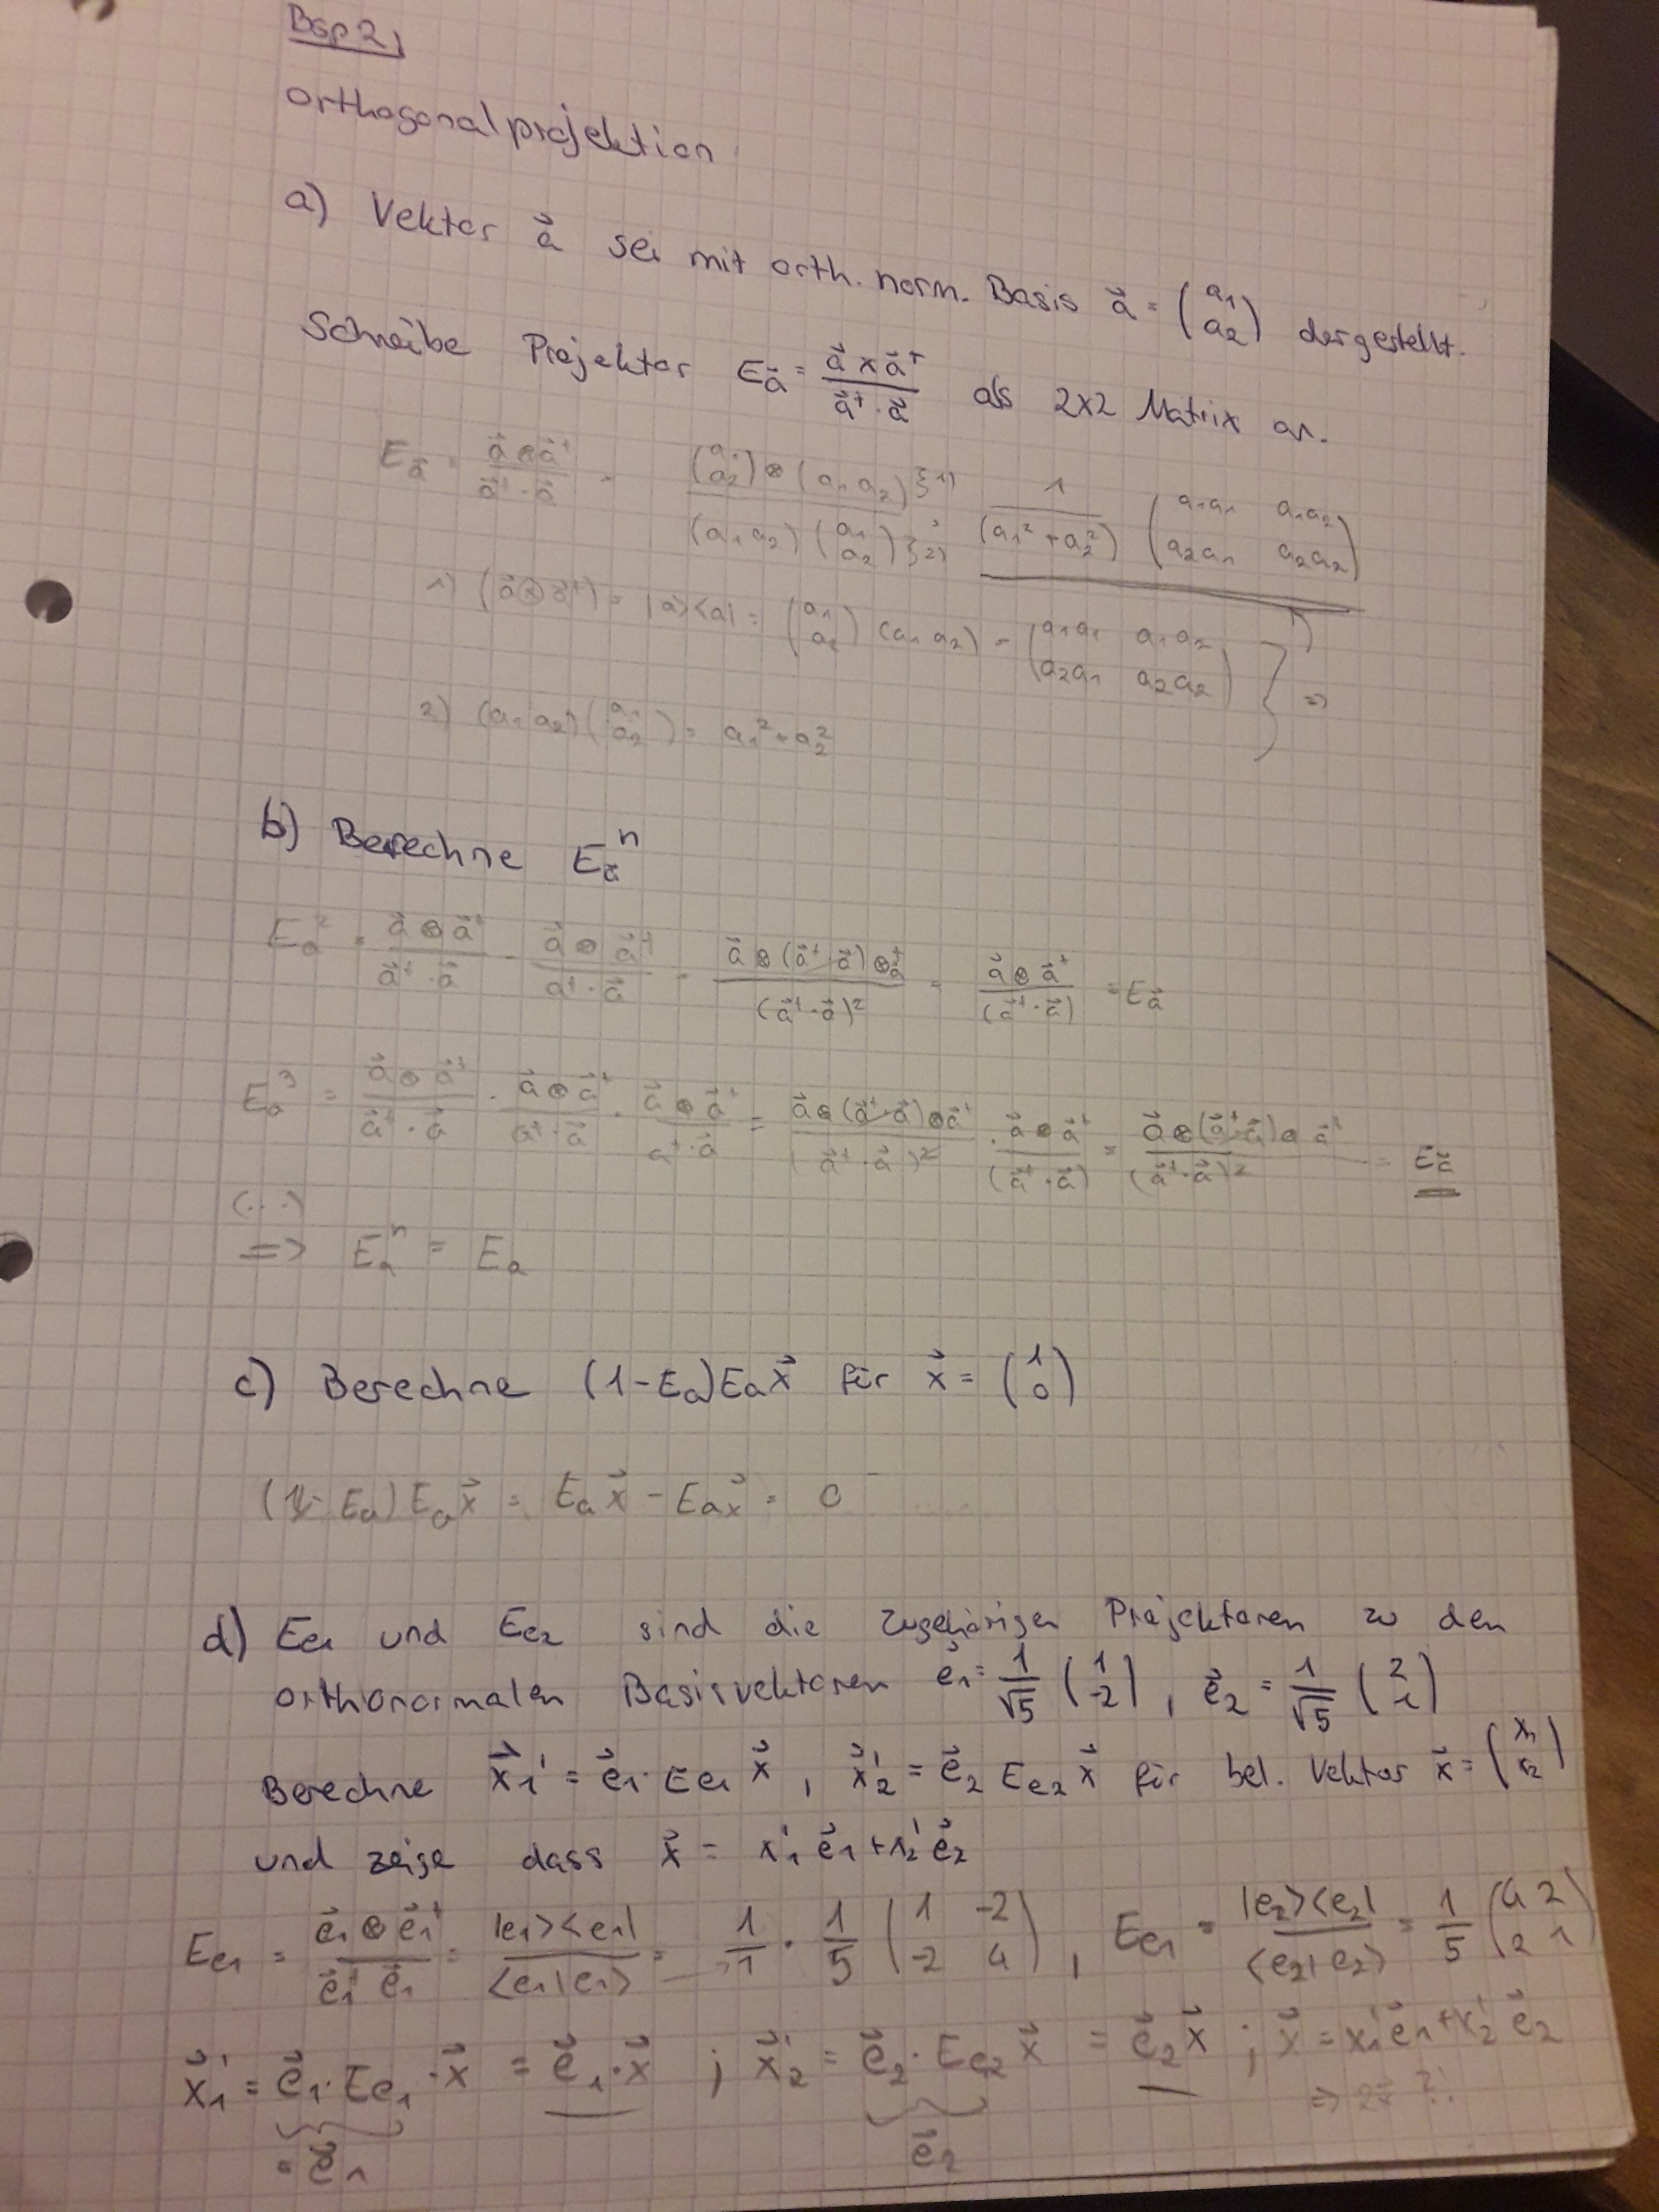 Bsp 2)
Orthogonalprojektion
a) Vektor a⃗ sei mit orth. norm. Basis a⃗ = (a₁ a₂) dargestellt.
Schreibe Projektor E_a⃗ = (a⃗ × a⃗⁺)/(a⃗⁺ · a⃗) als 2x2 Matrix an.
E_a⃗ = (a⃗ ⊗ a⃗⁺)/(a⃗⁺ · a⃗) = ((a₁ a₂) ⊗ (a₁ a₂) }1))/((a₁ a₂) (a₁ a₂) }2)) = 1/(a₁² + a₂²) (a₁a₁ a₁a₂ a₂a₁ a₂a₂)
1) (a⃗ ⊗ a⃗⁺) = |a><a| = (a₁ a₂) (a₁ a₂) = (a₁a₁ a₁a₂ a₂a₁ a₂a₂) } =>
2) (a₁ a₂) (a₁ a₂) = a₁² + a₂²
b) Berechne E_a⃗ⁿ
E_a² = (a⃗ ⊗ a⃗⁺)/(a⃗⁺ · a⃗) · (a⃗ ⊗ a⃗⁺)/(a⁺ · a⃗) = (a⃗ ⊗ (a⃗⁺ · a⃗) ⊗ a⁺)/(a⃗⁺ · a⃗)² = (a⃗ ⊗ a⃗⁺)/(a⃗⁺ · a⃗) = E_a⃗
E_a³ = (a⃗ ⊗ a⃗⁺)/(a⃗⁺ · a⃗) · (a⃗ ⊗ a⃗⁺)/(a⁺ · a⃗) · (a⃗ ⊗ a⃗⁺)/(a⁺ · a⃗) = (a⃗ ⊗ (a⃗⁺ · a⃗) ⊗ a⃗⁺)/(a⃗⁺ · a⃗)² · (a⃗ ⊗ a⃗⁺)/(a⃗⁺ · a⃗) = (a⃗ ⊗ (a⃗⁺ · a⃗) ⊗ a⃗⁺)/(a⃗⁺ · a⃗)² = E_a⃗
(...)
=> E_aⁿ = E_a
c) Berechne (1-E_a)E_a x⃗ für x⃗ = (1 0)
(1 - E_a) E_a x⃗ = E_a x⃗ - E_a x⃗ = 0
d) E_e₁ und E_e₂ sind die zugehörigen Projektoren zu den
orthonormalen Basisvektoren e⃗₁ = 1/√5 (1 -2), e⃗₂ = 1/√5 (2 1)
Berechne x⃗₁' = e⃗₁ · E_e₁ x⃗, x⃗₂' = e⃗₂ E_e₂ x⃗ für bel. Vektor x⃗ = (x₁ x₂)
und zeige dass x⃗ = x₁' e⃗₁ + x₂' e⃗₂
E_e₁ = (e⃗₁ ⊗ e⃗₁⁺)/(e⃗₁⁺ e⃗₁) = |e₁><e₁|/<e₁|e₁> = 1/1 · 1/5 (1 -2 -2 4), E_e₁ = |e₂><e₂|/<e₂|e₂> = 1/5 (4 2 2 1)
x⃗₁' = e⃗₁ · E_e₁ · x⃗ = e⃗₁ · x⃗ ; x⃗₂' = e⃗₂ · E_e₂ x⃗ = e⃗₂ x⃗ ; x⃗ = x₁' e⃗₁ + x₂' e⃗₂
= e⃗₁ e⃗₂